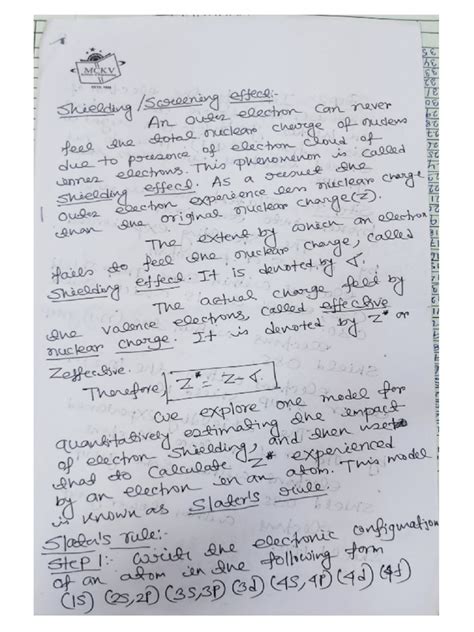 MCKV
Shielding/Screening effect:-
An outer electron can never
feel the total nuclear charge of nucleus
due to presence of electron cloud of
inner electrons. This phenomenon is called
Shielding effect. As a result the
outer electron experience less nuclear charge
than the original nuclear charge(Z).
The extent by which an electron
fails to feel the nuclear charge, called
Shielding effect. It is denoted by σ.
The actual charge feel by
the valence electrons, called effective
nuclear charge. It is denoted by Z* or
Zeffective.
Therefore, Z* = Z-σ.
We explore one model for
quantitatively estimating the impact
of electron shielding, and then use
that to calculate Z* experienced
by an electron in an atom. This model
is known as Slater's rule.
Slater's rule:-
Step 1:- Write the electronic configuration
of an atom in the following form
(1S) (2S,2P) (3S,3P) (3d) (4S,4P) (4d) (4f)